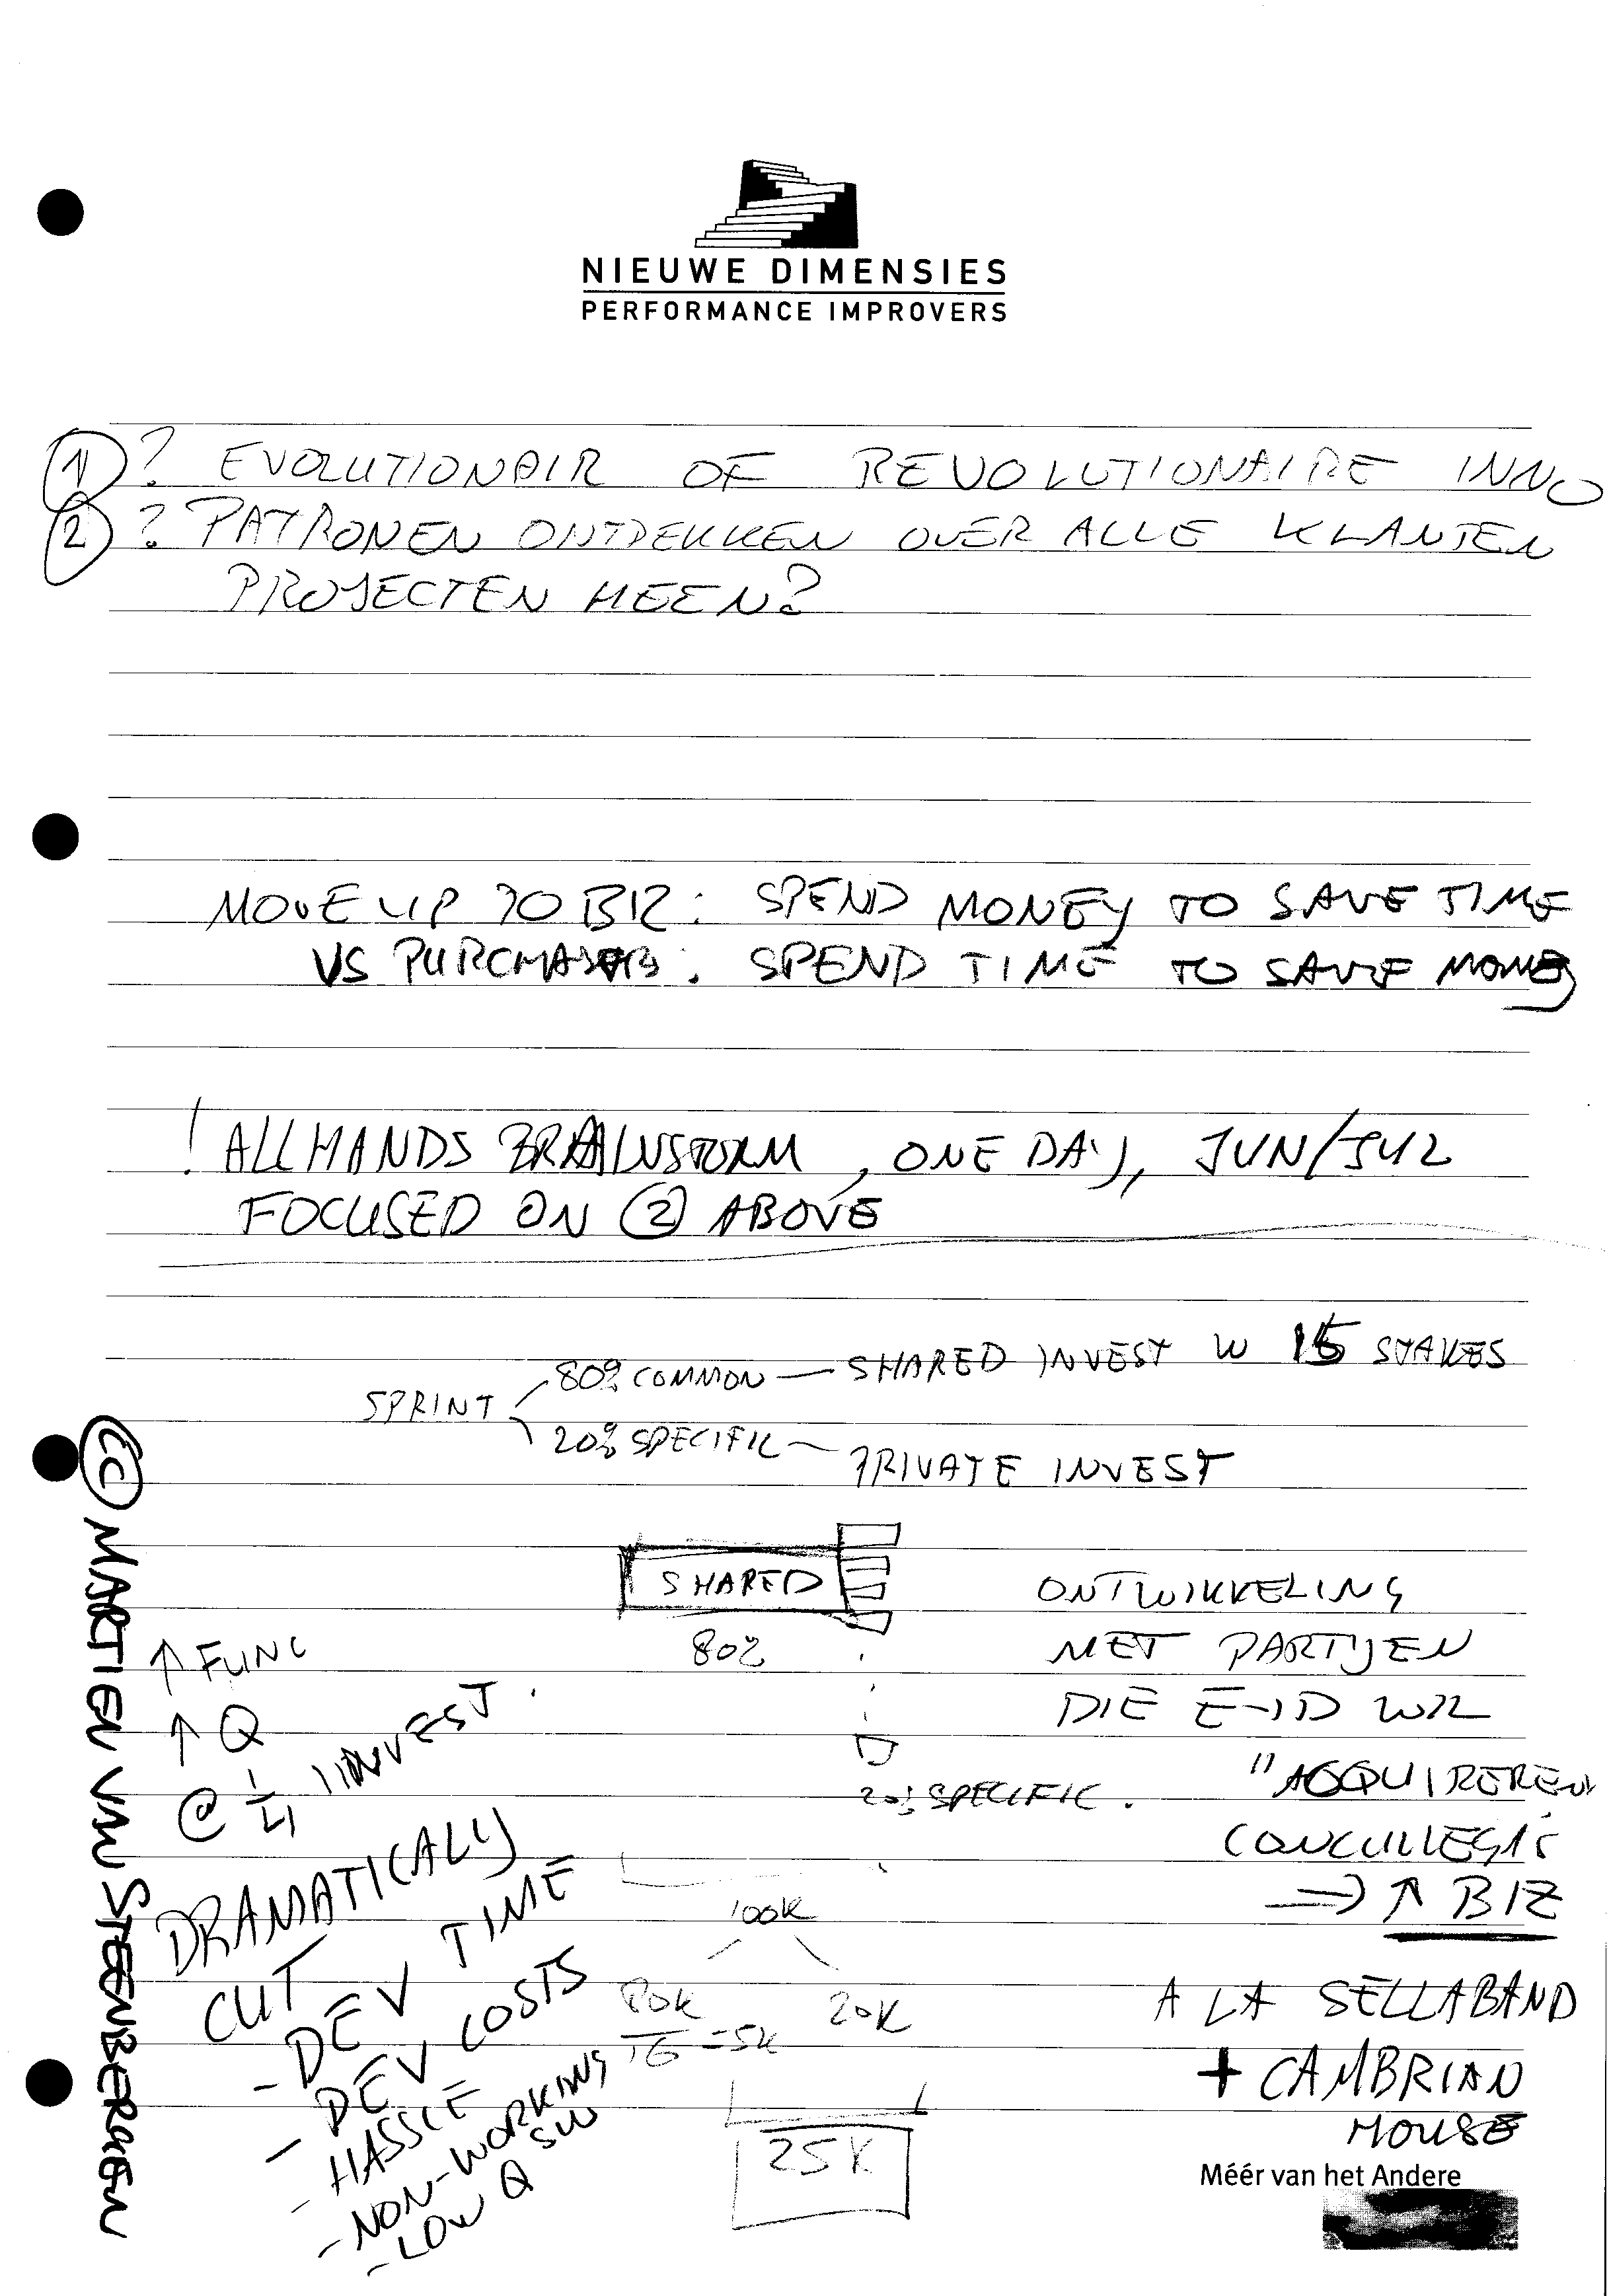 NIEUWE DIMENSIES
PERFORMANCE IMPROVERS
1) ? EVOLUTIONAIR OF REVOLUTIONAIRE INNO
2) ? PATRONEN ONTDEKKEN OVER ALLE KLANTEN
PROJECTEN HEEN?
MOVE UP TO BIZ: SPEND MONEY TO SAVE TIME
VS : SPEND TIME TO SAVE MONEY
! ALL HANDS BRAINSTORM, ONE DAY, JUN/JUL
FOCUSED ON 2 ABOVE
SPRINT
80% COMMON — SHARED INVEST W 15 STAKES
20% SPECIFIC — PRIVATE INVEST
SHARED
80%
20% SPECIFIC.
ONTWIKKELING
MET PARTIJEN
DIE E-ID WIL
"ACQUIREREN
⇒ ↑ BIZ
A LA SELLABAND
+ CAMBRIAN
HOUSE
↑ FUNC
↑ Q
@ 1/4 INVEST
DRAMATICALLY
CUT
- DEV TIME
- DEV COSTS
- HASSLE
- NON-WORKING SW
- LOW Q
100K
80K
20K
16 = 5K
25K
CC MARTIEN VAN STEENBERGEN
Méér van het Andere